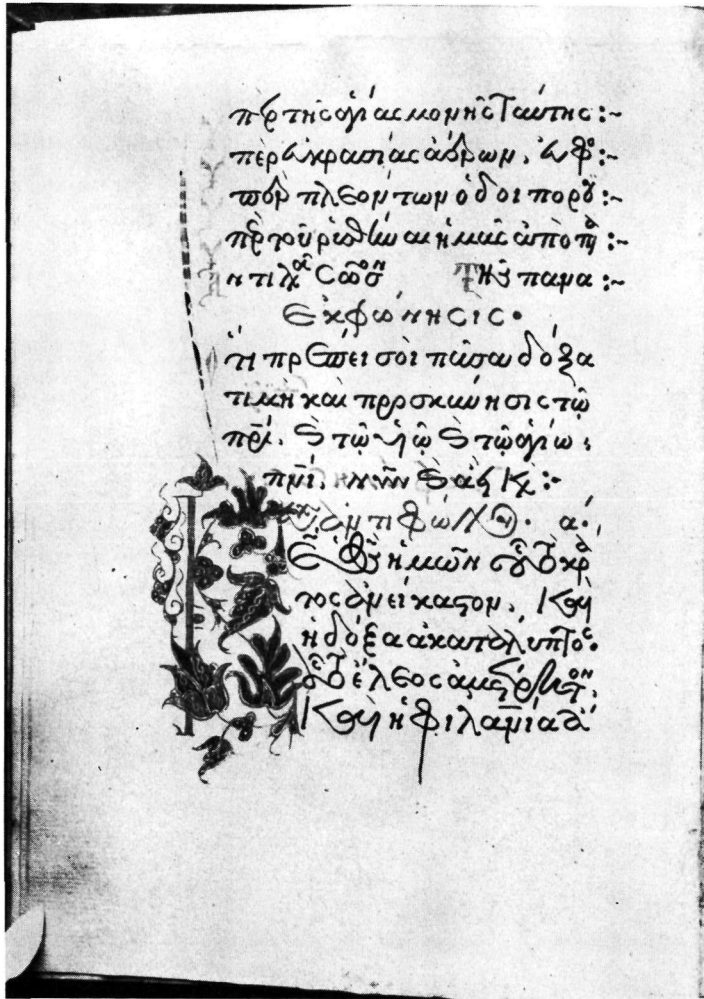 πὲρ τῆς ἁγίας μονῆς ταύτης :~
πὲρ εὐκρασίας ἀέρων. εὐφ :~
πὲρ πλεόντων ὁδοιπορού :~
πὲρ τοῦ ῥυσθῆναι ἡμᾶς ἀπὸ π :~
ντιλ σῶσ Τῆς πανα :~
Ἐκφώνησις.
τι πρέπει σοι πᾶσα δόξα
τιμὴ καὶ προσκύνησις τῷ
πρι. καὶ τῷ υἱῷ καὶ τῷ ἁγίῳ
πνι. νῦν καὶ ἀεὶ καὶ :~
ἀντιφώνου. α.
Κε ὁ θς ἡμῶν οὗ τὸ κρά
τος ἀνείκαστον. καὶ
ἡ δόξα ἀκατάληπτος.
οὗ τὸ ἔλεος ἀμέτρητον.
καὶ ἡ φιλανια ἄ